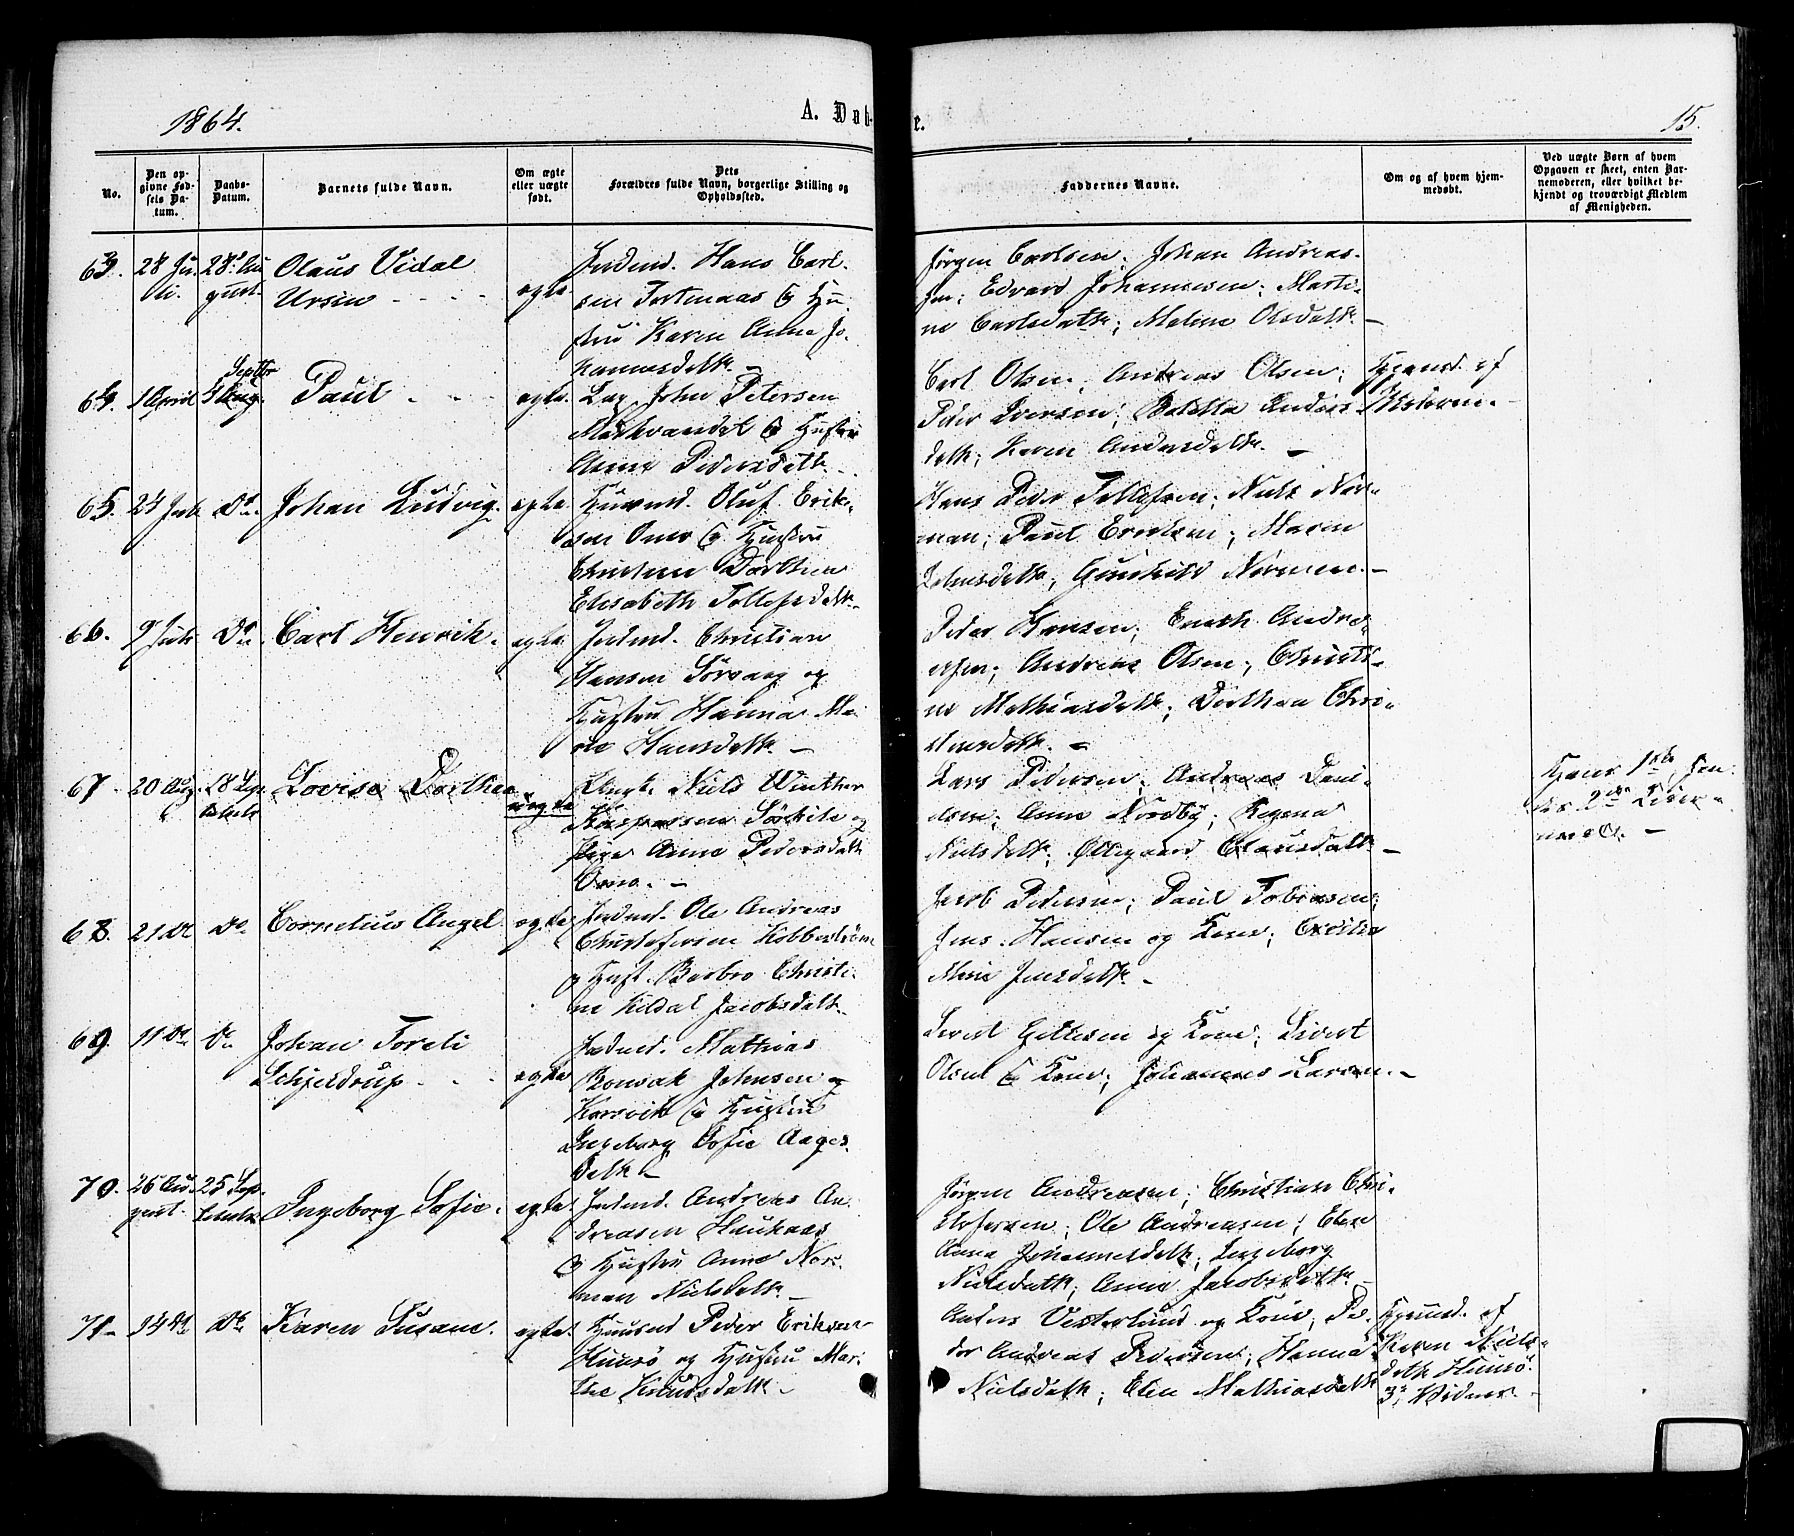 1864.
A. Døb-
e.
15.
No.
Den op-
givne Fød-
sels Da-
tum.
Daabs-
Datum.
Barnets fulde Navn.
Om ægte
eller uægte
født.
Dets
Forældres fulde Navn, borgerlige Stilling og
Opholdssted.
Faddernes Navne.
Om og af hvem hjem-
medøbt.
Ved uægte Børn af hvem
Opgaven er skeet, enten Bar-
nemoderen, eller hvilket be-
kjendt og troværdigt Medlem
af Menigheden.
63. 28 Ju-
li.
28 Au
gust.
Olaus Vidal
Ursin
ægte
Indend. Hans Carl-
sen Tortenaas & Hu-
stru Karen Anna Jo-
hannesdatt. –
Jørgen Carlsen; Johan Andreas-
sen; Edvard Johannesen; Marti-
ne Carlsdatt; Maline Olsdatt. –
64. 1 April
Septbr
4
Paul
ægte.
John Petersen
& Hustru
Anne Pedersdatt.
Carl Olsen; Andreas Olsen;
Peder Iversen; Anders-
datt; Karen Andersdatt. –
af
65. 24 Juli
Do.
Johan Ludvig.
ægte
Huusmd. Oluf Erik-
sen Onø & Hustru
Christine Dorthea
Elisabeth Tollefsdatt.
Hans Peder Tollefsen; Niels Nor-
man; Paul Eriksen; Maren
Johnsdatt; Gunhild Norman. –
66. 9 Juli
Do.
Carl Henrik.
ægte
Indend. Christian
Hansen Sørvaag og
Hustru Hanna Ma-
rie Hansdatt. –
Peder Hansen; Andre-
esen; Andreas Olsen; Christi-
ne Mathiasdatt; Dorthea Chri-
stensdatt. –
67 20 Aug.
18 Sep
tembr
Lovise Dorthea
uægte
Ungk. Niels Winther
Kaspersen og
Pige Anne Pedersdatt
Onø. –
Lars Pedersen; Andreas Dani-
elsen; Anne Nordby; Regina
Nielsdatt; Ollegaard Clausdatt –
68. 21 Do
Do.
Cornelius Angel
ægte
Indend. Ole Andreas
Christofersen Kobberstrøm
og Hust. Barbro Christi-
ne Kildal Jacobsdatt.
Jacob Pedersen; Paul Tobiasen;
Jens Hansen og Kone; Cecilia
Marie Jensdatt. –
69 11 Do
Do
Johan Toreli
Schjeldrup
ægte
Indend. Mathias
Bonsak Johnsen og
Korsvik & Hustru
Ingeborg Sofie Aages-
datt –
Sivert Gettesen og Kone; Sivert
Olsen & Kone; Johannes Larsen. –
70. 26 Au-
gust.
25 Sep-
tembr
Ingeborg Sofie.
ægte
Indend. Andreas An-
dreasen Haukaas
& Hustru Anne Nor-
man Nielsdatt. –
Jørgen Andreasen; Christian Chri-
stofersen; Ole Andreasen; Elen
Anna Johannesdatt; Ingeborg
Nielsdatt; Anne Jacobsdatt –
71 – 14 Do
Do
Karen Susane.
ægte
Huusmd Peder Eriksen
Huusø og Hustru Mar-
the Knudsdatt. –
Anders Vesterlund og Kone; Pe-
der Andreas Pedersen; Hanna
Nielsdatt; Elen Mathiasdatt
af
Karen Niels-
datt Huusø.